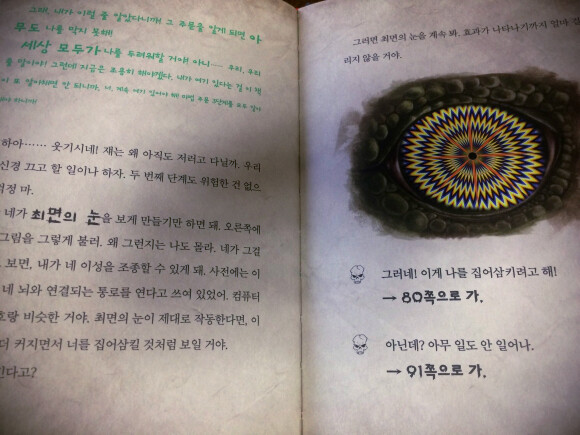 그래, 내가 이럴 줄 알았다니까! 그 주문을 알게 되면 아
무도 나를 막지 못해!
세상 모두가 나를 두려워할 거야! 아니…… 우리, 우리
를 말이야! 그런데 지금은 조용히 해야겠다. 내가 여기 있다는 걸 이 책
하아…… 웃기시네! 쟤는 왜 아직도 저러고 다닐까. 우리
신경 끄고 할 일이나 하자. 두 번째 단계도 위험한 건 없으
걱정 마.
네가 최면의 눈을 보게 만들기만 하면 돼. 오른쪽에
그림을 그렇게 불러. 왜 그런지는 나도 몰라. 네가 그걸
보면, 내가 네 이성을 조종할 수 있게 돼. 사전에는 이
네 뇌와 연결되는 통로를 연다고 쓰여 있었어. 컴퓨터
호랑 비슷한 거야. 최면의 눈이 제대로 작동한다면, 이
더 커지면서 너를 집어삼킬 것처럼 보일 거야.
된다고?
그러면 최면의 눈을 계속 봐. 효과가 나타나기까지 얼마 걸
리지 않을 거야.
그러네! 이게 나를 집어삼키려고 해!
→ 80쪽으로 가.
아닌데? 아무 일도 안 일어나.
→ 91쪽으로 가.